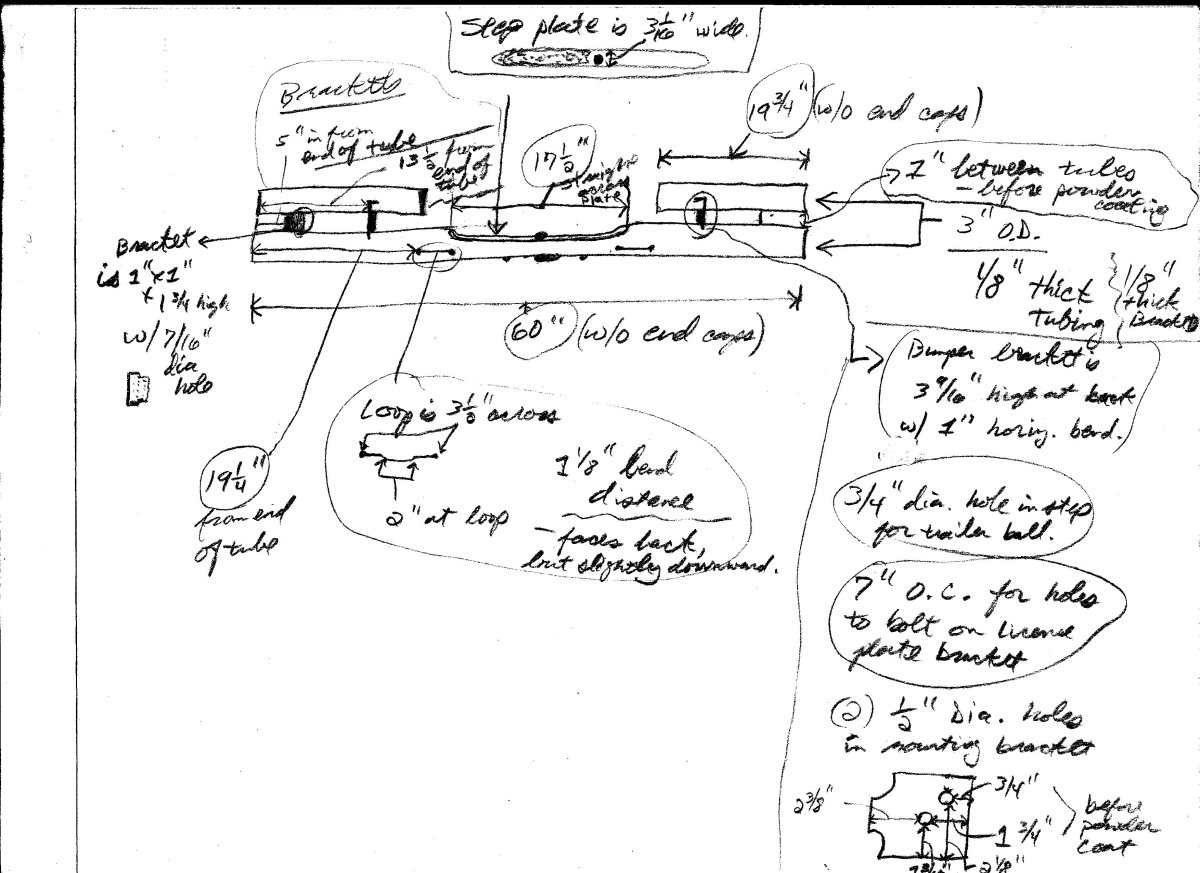 Step plate is 3 1/16" wide.
Brackets
5" in from
end of tube
13 1/2 from
end of
tube
17 1/2"
straight
across
plate
19 3/4" (w/o end caps)
1" between tubes
- before powder
coating
3" O.D.
1/8" thick
tubing
1/8"
thick
Brackets
Bracket
is 1" x 1"
x 1 3/4 high
w/ 7/16"
dia
hole
60" (w/o end caps)
Bumper brackett is
3 9/16" high at back
w/ 1" horiz. bend.
Loop is 3 1/2" across
2" at loop
1 1/8" bend
distance
- faces back,
but slightly downward.
19 1/4"
from end
of tube
3/4" dia. hole in step
for trailer ball.
7" O.C. for holes
to bolt on License
plate bracket
(2) 1/2" Dia. holes
in mounting bracket
2 3/8"
3/4"
1 3/4"
2 1/8"
before
powder
coat